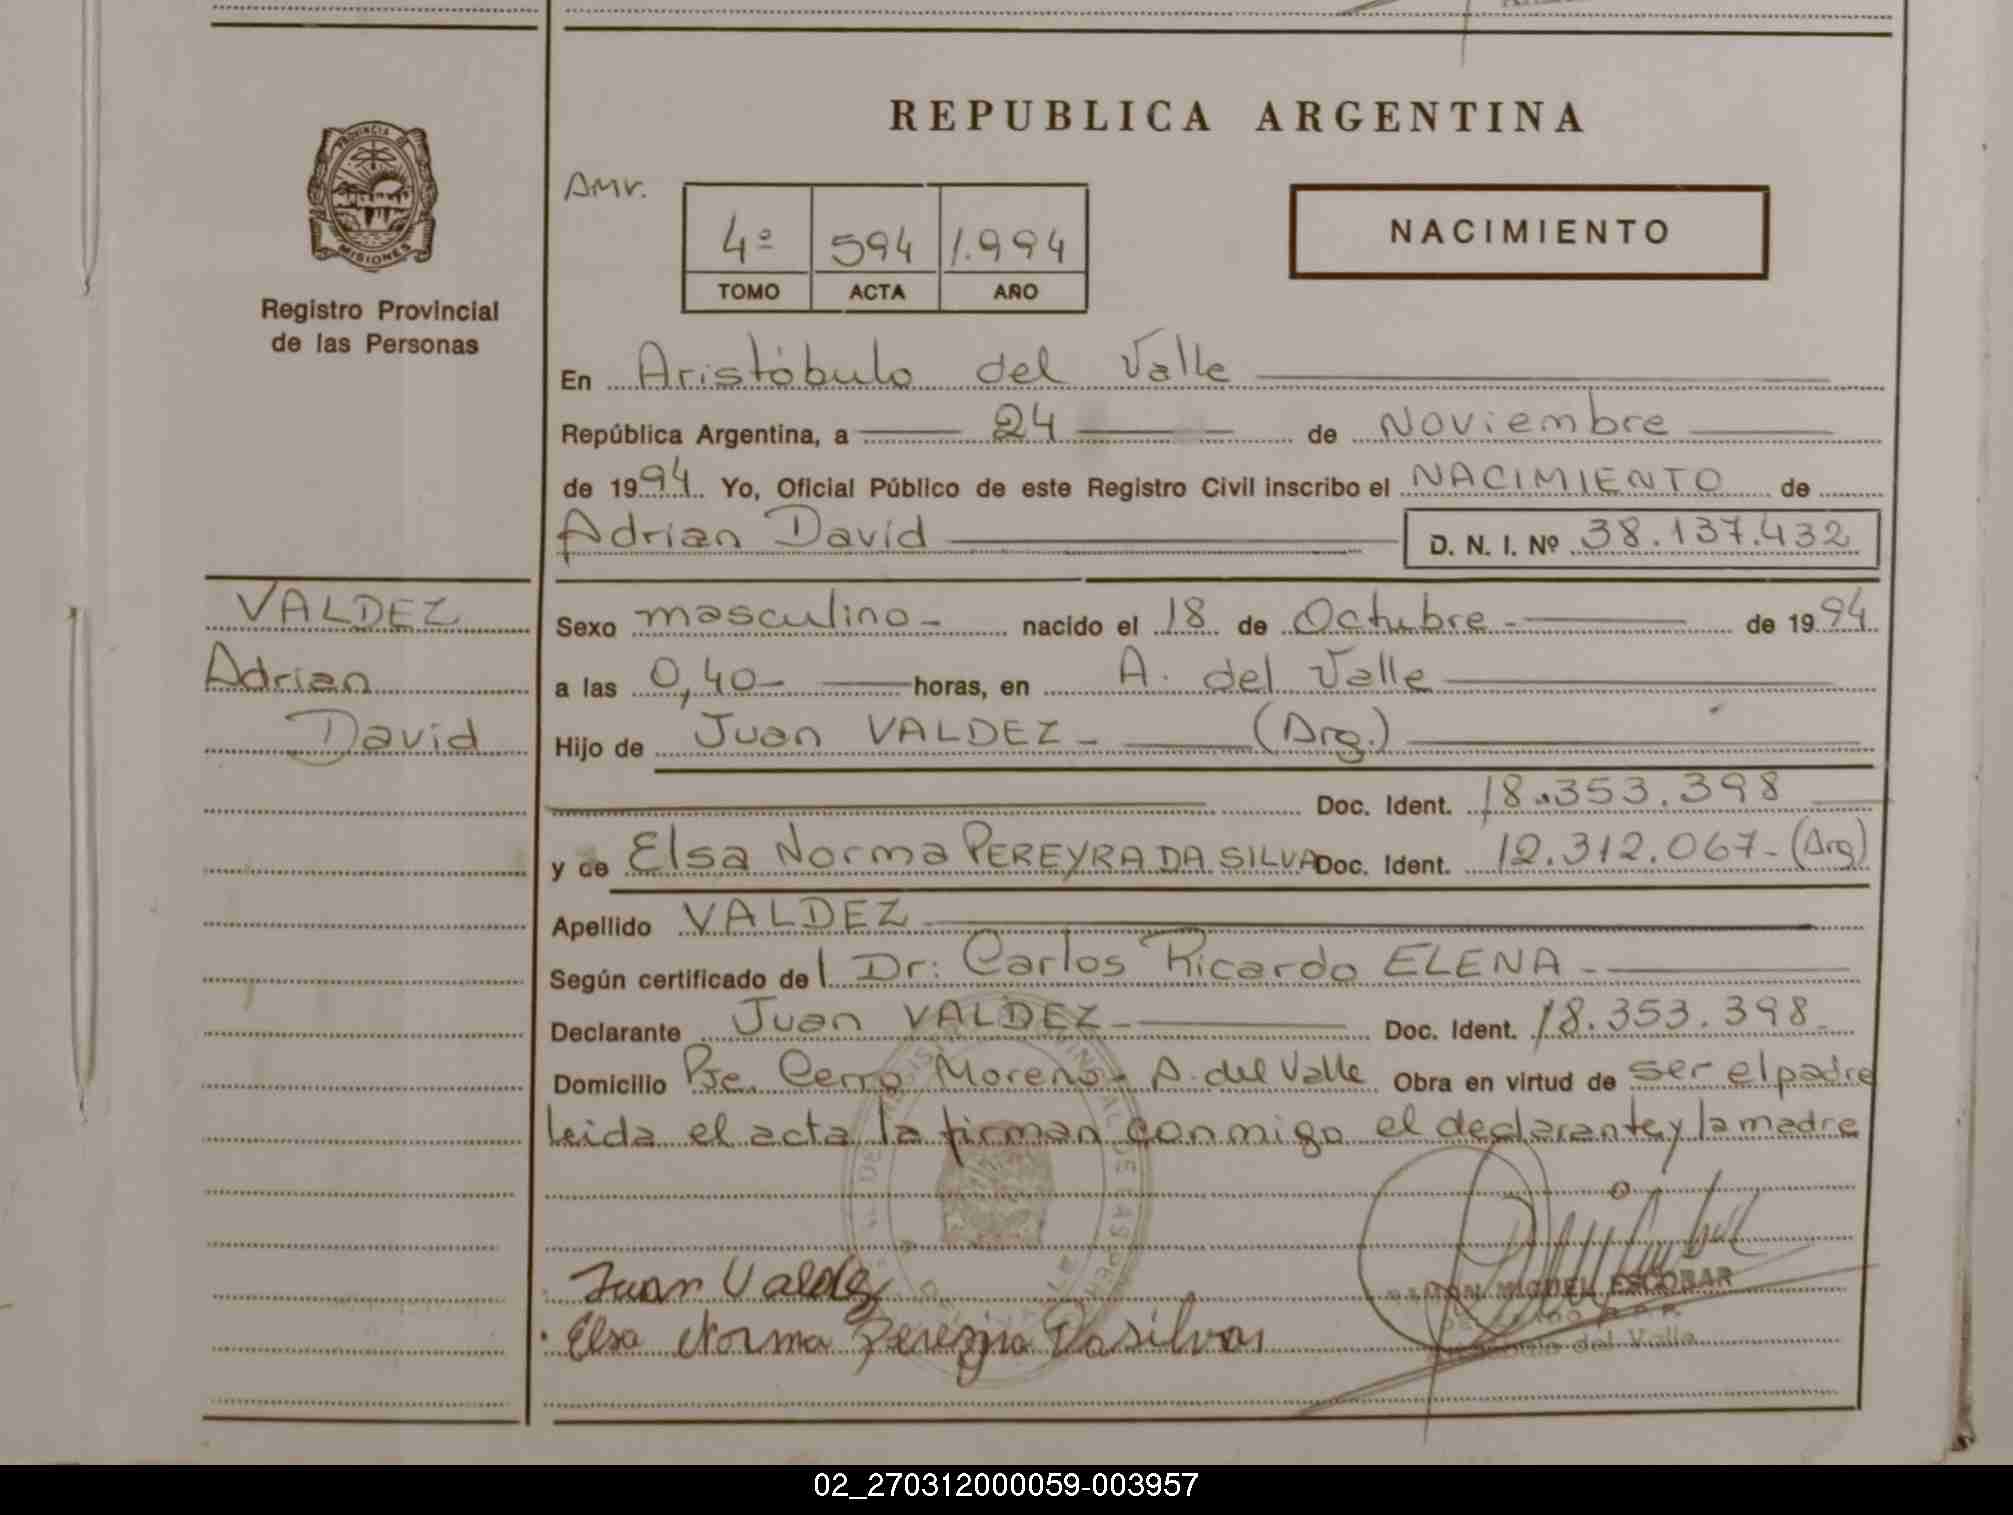 REPUBLICA ARGENTINA
PROVINCIA DE
MISIONES
Registro Provincial
de las Personas
AMV.
4º 594 1.994
TOMO ACTA AÑO
NACIMIENTO
En Aristóbulo del Valle
República Argentina, a 24 de Noviembre
de 1994 Yo, Oficial Público de este Registro Civil inscribo el NACIMIENTO de
Adrian David D. N. I. Nº 38.137.432
VALDEZ
Adrian
David
Sexo masculino- nacido el 18 de Octubre- de 1994
a las 0,40- horas, en A. del Valle
Hijo de Juan VALDEZ- (Arg.)
Doc. Ident. 18.353.398
y de Elsa Norma PEREYRA DA SILVA Doc. Ident. 12.312.067-(Arg)
Apellido VALDEZ
Según certificado del Dr: Carlos Ricardo ELENA-
Declarante Juan VALDEZ- Doc. Ident. 18.353.398-
Domicilio Pje. Cerro Moreno- A. del Valle Obra en virtud de ser el padre
leida el acta la firman conmigo el declarante y la madre
Juan Valdez
Elsa Norma Pereyra Dasilva
RAMON MIGUEL ESCOBAR
del Valle
02_270312000059-003957